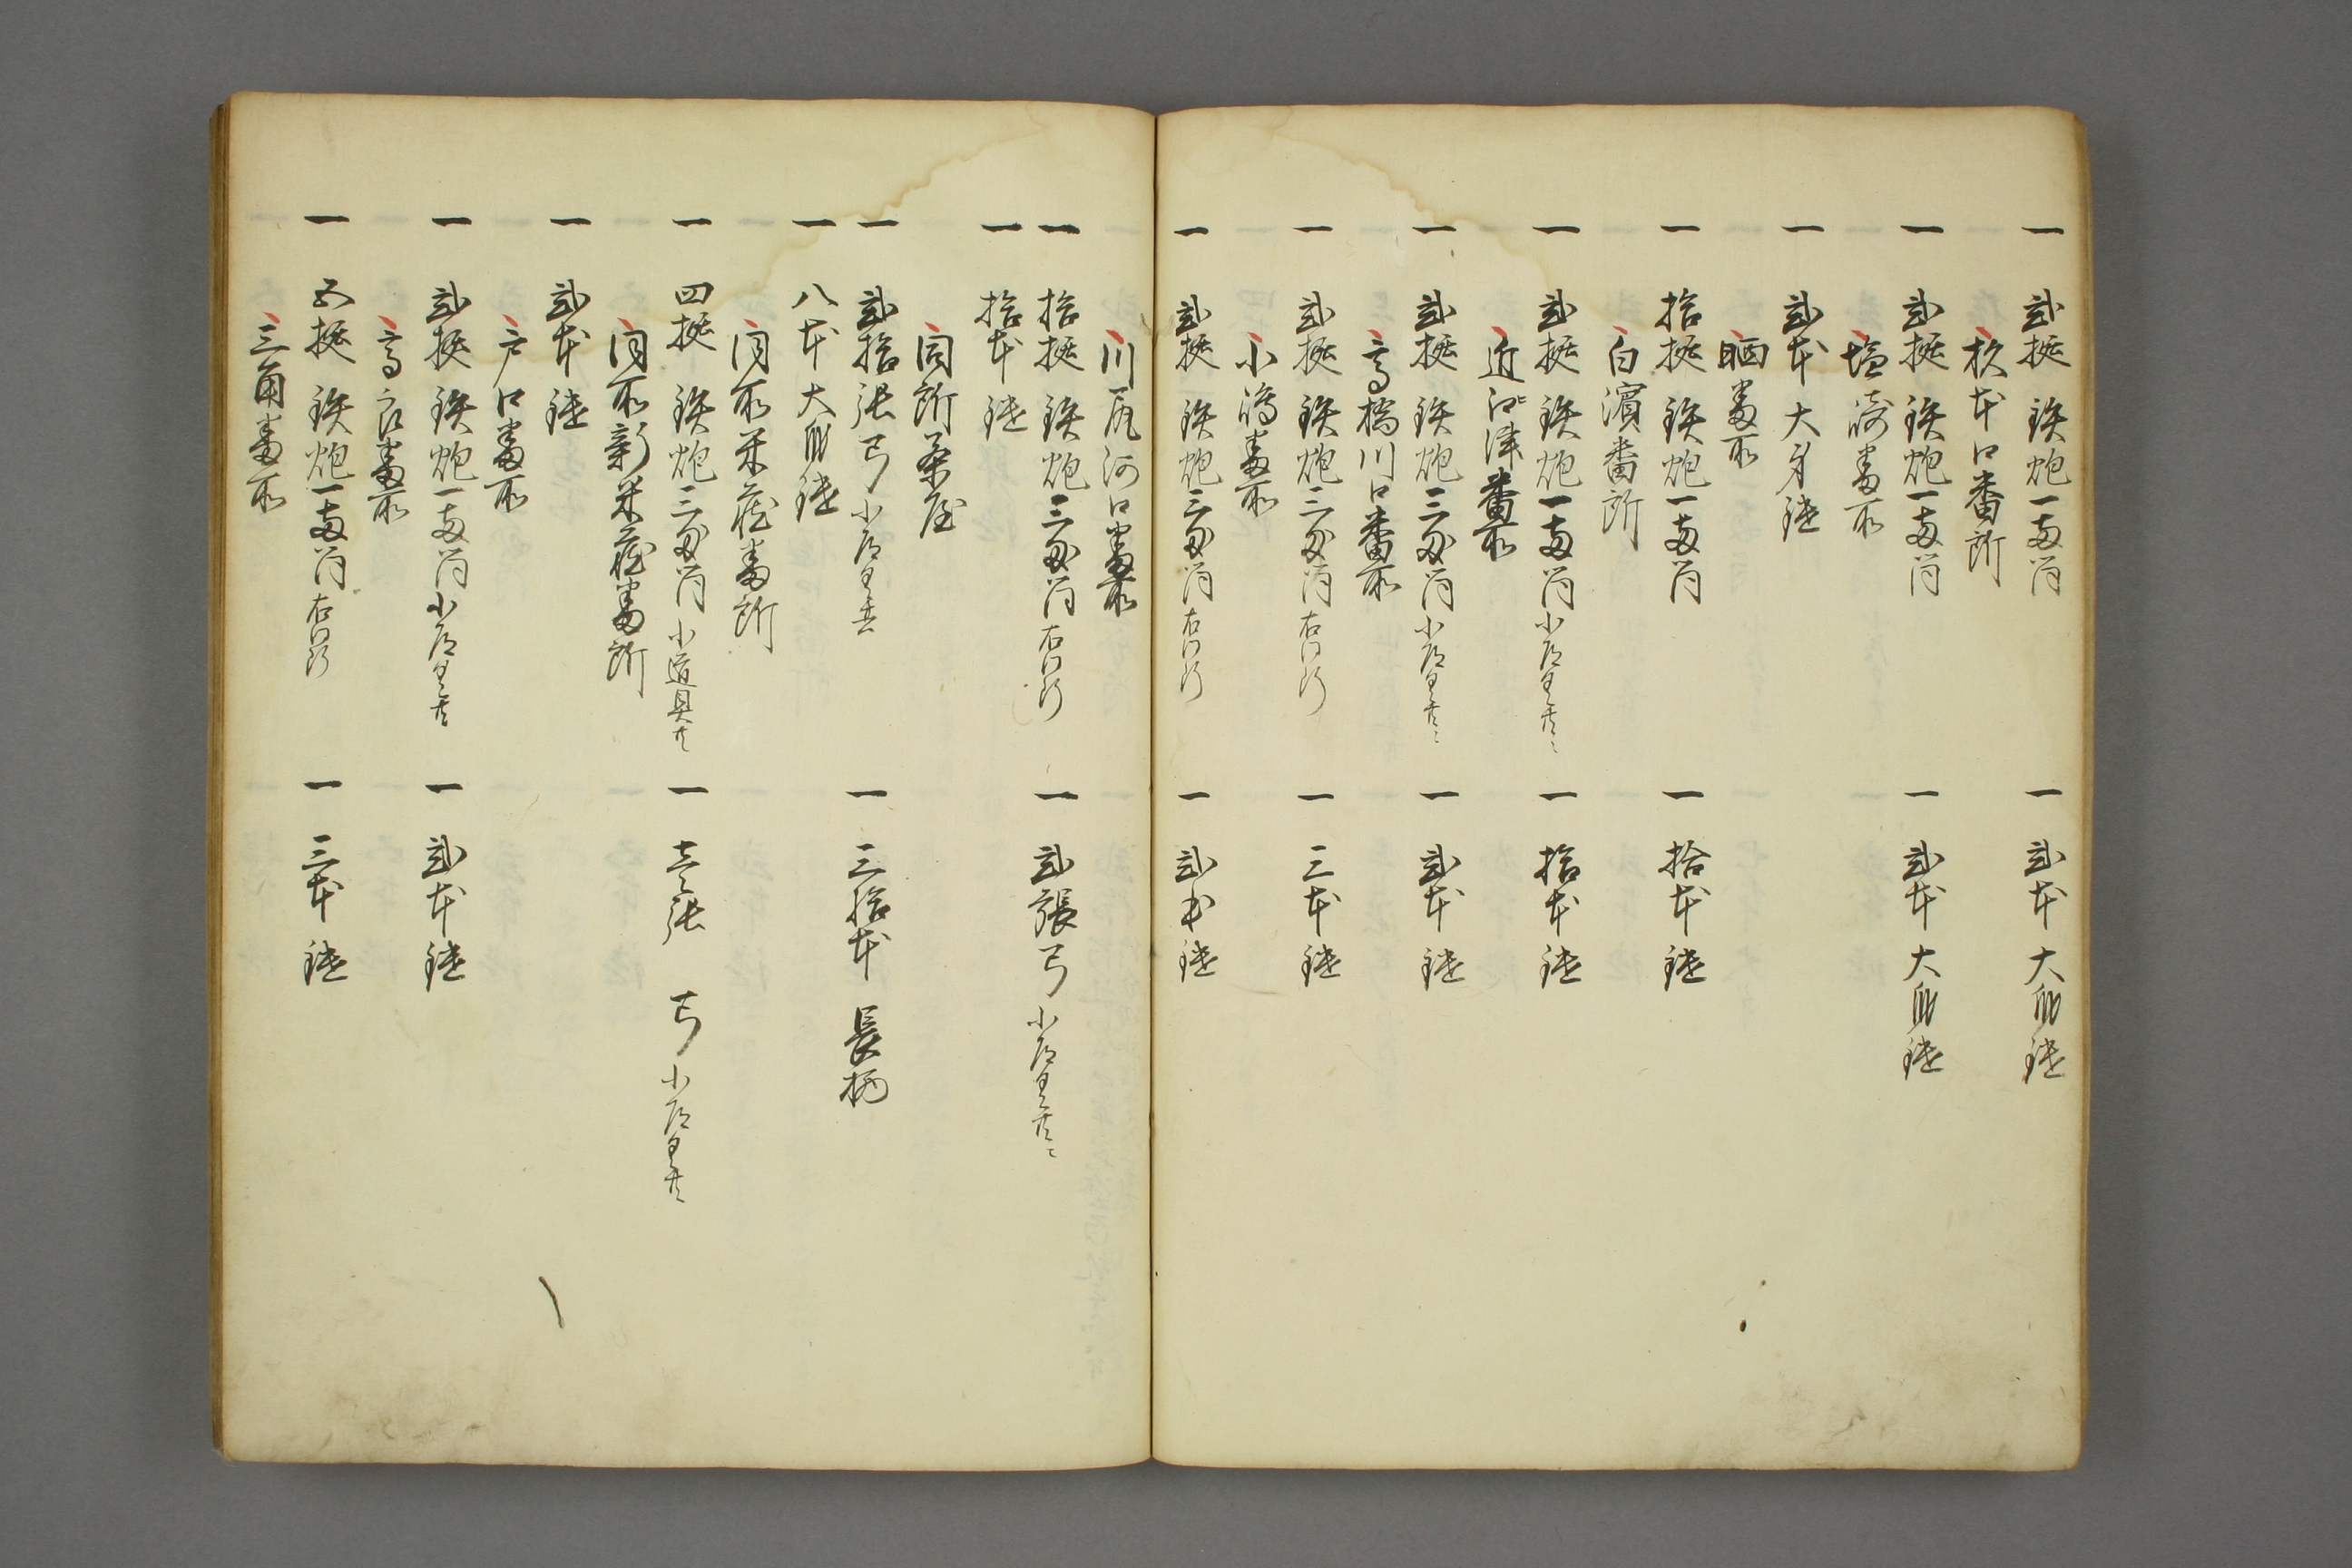 一 弐挺 鉄炮一両筒 一 弐本 大身鑓
杉本口番所
一 弐挺 鉄炮一両筒 一 弐本 大身鑓
塩崎番所
一 弐本 大身鑓
晒番所
一 拾挺 鉄炮一両筒 一 拾本 鑓
白濱番所
一 弐挺 鉄炮一両筒 小道具共ニ 一 拾本 鑓
近津番所
一 弐挺 鉄炮三匁筒 小道具共ニ 一 弐本 鑓
高橋川口番所
一 弐挺 鉄炮三匁筒 右同断 一 三本 鑓
小嶋番所
一 弐挺 鉄炮三匁筒 右同断 一 弐本 鑓
川尻河口番所
一 拾挺 鉄炮三匁筒 右同断 一 弐張 弓 小道具共ニ
一 拾本 鑓
同所茶屋
一 弐拾張 弓 小道具共 一 三拾本 長柄
一 八本 大身鑓
同所米蔵番所
一 四挺 鉄炮三匁筒 小道具共 一 壱張 弓 小道具共
同所新米蔵番所
一 弐本 鑓
戸口番所
一 弐挺 鉄炮一両筒 小道具共 一 弐本 鑓
高良番所
一 五挺 鉄炮一両筒 右同断 一 三本 鑓
三角番所